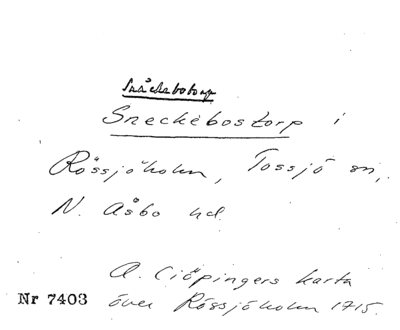 Snäckebotorp
Sneckebostorp i
Rössjöholm, Tossjö sn,
N. Åsbo hd.
A. Ciöpingers karta
Nr 7403 över Rössjöholm 1715.